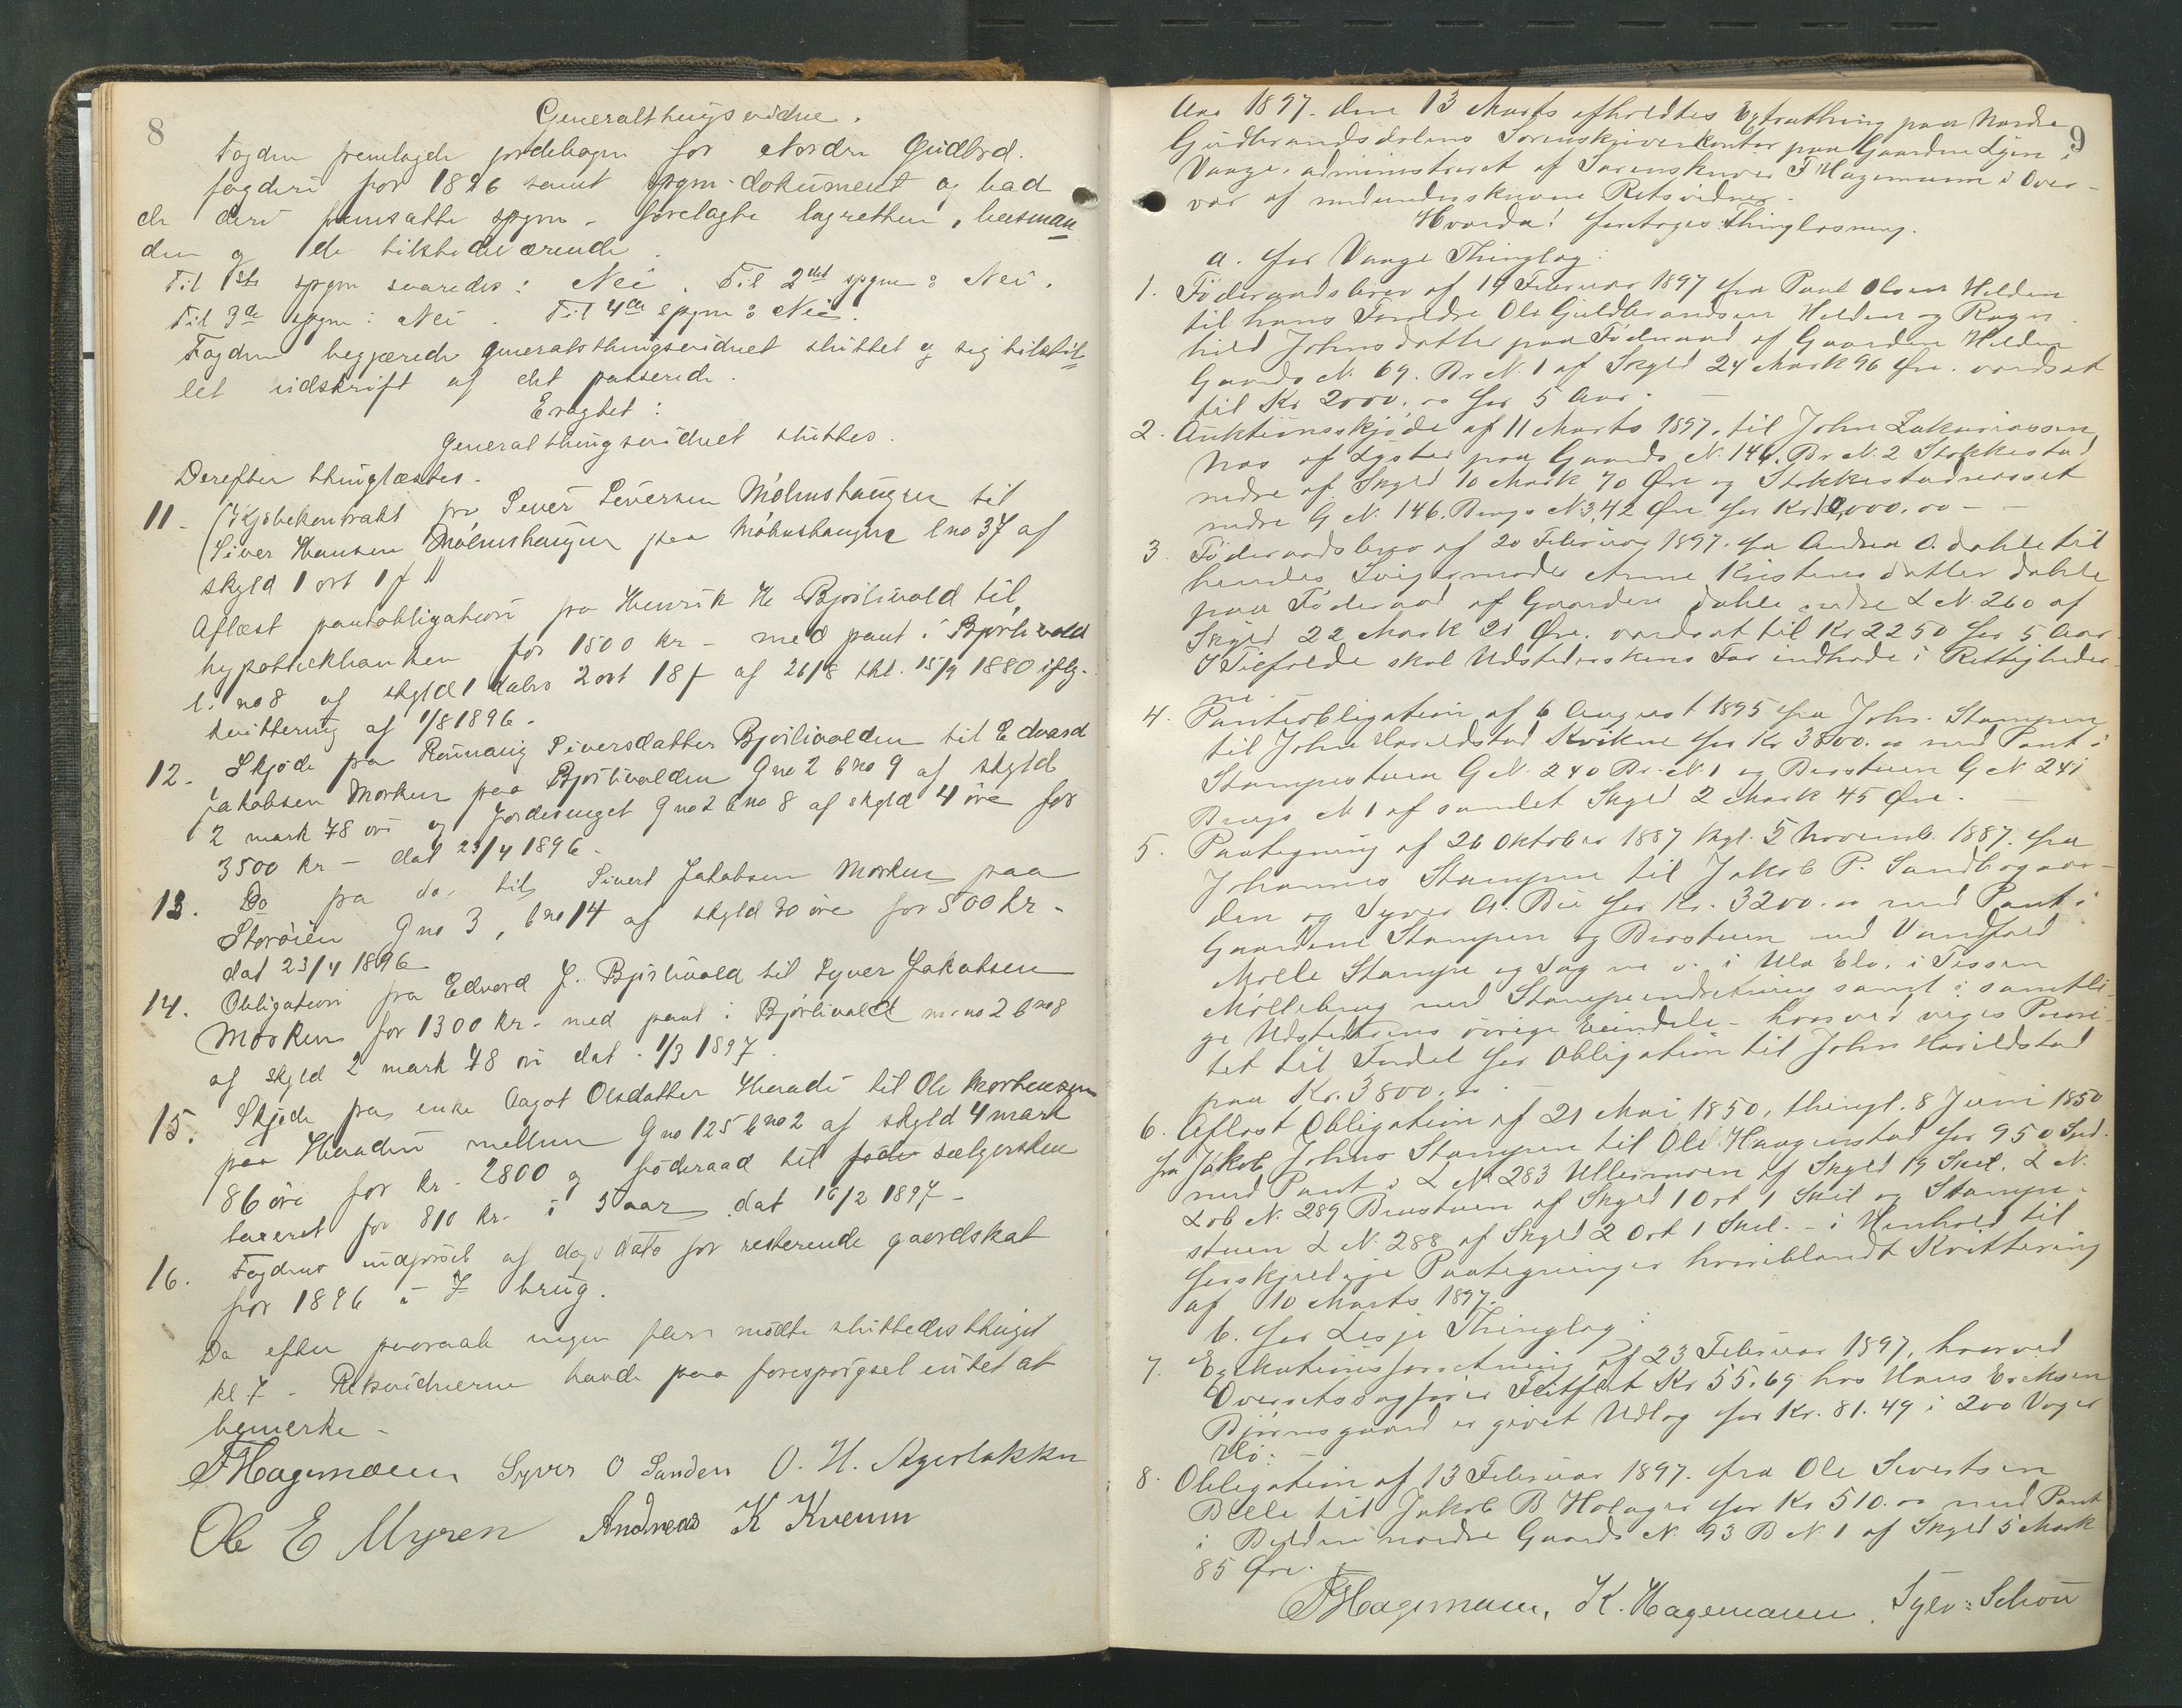 8
Generalthingsvidne.
Fogden fremlagde jordebogen for Nordre Gudbrd.
fogderi for 1896 samt spgm-dokument og bad
de deri fremsatte spgm. forelagte lagretten, lensman
den og de tilstedeværende.
Til 1ste spgm svaredes: Nei. Til 2det spgm: Nei.
Til 3de spgm: Nei. Til 4de spgm: Nei.
Fogden begjærede generalthingsvidnet sluttet og sig tilstil
let udskrift af det passerede.
Eragtet:
Generalthingsvidnet sluttes.
Derefter thinglæstes.
11. Kjøbekontrakt fra Siver Siversen Mølmshaugen til
Siver Hansen Mølmshaugen paa Mølmshaugen l no 37 af
skyld 1 ort 1 f
Aflæst pantobligation fra Henrik H. Bjorlivold til
hypothekbanken for 1500 kr - med pant i Bjorlivold
l. no 8 af skyld 1 daler 2 ort 18 f af 26/8 thl. 15/9 1880 iflg.
kvittering af 1/8 1896.
12. Skjøde fra Rønnaug Siversdatter Bjorlivolden til Edvard
Jakobsen Morken paa Bjorlivolden gno 2 bno 9 af skyld
2 mark 78 øre og Jordesveget gno 2 bno 8 af skyld 4 øre for
3500 kr - dat 23/4 1896.
13. Do fra do. til Sivert Jakobsen Morken paa
Storøien gno 3, bno 14 af skyld 30 øre for 500 kr.
dat 23/4 1896
14. Obligation fra Edvard J. Bjorlivold til Syver Jakobsen
Morken for 1300 kr. med pant i Bjørlivold no 2 bno 8
af skyld 2 mark 78 øre dat. 1/3 1897.
15. Skjøde fra enke Aagot Olsdatter Haade til Ole Mortensen
paa mellem gno 125 bno 2 af skyld 4 mark
86 øre for kr. 2800 og føderaad til føde sælgersken
taxeret for 810 kr. i 5 aar dat 16/2 1897.
16. Fogdens udpresel af dags dato for resterende gaardskat
for 1896 i 7 brug.
Da efter paaraab ingen flere mødte sluttedes thinget
kl 7. Retsvidnerne havde paa forespørgsel intet at
bemerke.
FHagemann Syver O Sanden O. H. Agerlakken
Ole E Myren Andreas K Kvenm
9
Aar 1897. den 13 Marts afholdtes Extrathing paa Nordre
Gudbrandsdalens Sorenskriverkontor paa Gaarden Lyen i
Vaage, administreret af Sorenskriver F Hagemann i Over-
vær af undertegnede Retsvidner.
Hvorda! foretoges Thinglæsning.
a. for Vaage Thinglag:
1. Føderaadsbrev af 19 Februar 1897 fra Paul Olsen Helden
til hans Foreldre Ole Guldbrandsen Helden og Ragn
hild Johnsdatter paa Føderaad af Gaarden Helden
Gaards N. 69. Br N. 1 af Skyld 24 Mark 96 Øre. værdsat
til Kr 2000.00 for 5 Aar.
2. Auktionsskjøde af 11 Marts 1897, til John Zakariassen
Nos af Lyster paa Gaards N. 146. Br N. 2 Stokkestad
nedre af Skyld 10 Mark 70 Øre og Stokkestadneiset
nedre G N. 146. Brugs N 3, 42 Øre for Kr 10,000.00 -
3. Føderaadsbrev af 20 Februar 1897. fra Andrea O. Dahle til
hendes Svigermoder Anne Kristensdatter Dahle
paa Føderaad af Gaarden Dahle nedre L N 260 af
Skyld 22 Mark 21 Øre. værdsat til Kr 2250 for 5 Aar.
I Tilfælde skal Udstederskens Far indtræde i Rettigheder
ne.
4. Panteobligation af 6 August 1895 fra John. Stampen
til John Harildstad Kvikne for Kr 3800.00 med Pant i
Stampestuen G N. 240 Br. N. 1 og Brostuen G N 241
Brugs N 1 af samlet Skyld 2 Mark 45 Øre. -
5. Paategning af 26 Oktober 1887 tgl. 5 Novemb. 1887. fra
Johannes Stampen til Jakob P. Sandbogaar-
den og Syver A. Bu for Kr. 3200.00 med Pant i
Gaardene Stampen og Brostuen med Vandfald
Mølle Stampe og Sag m. v. i Ula Elv, i Tessen
Møllebrug med Stampeindretning samt i samtli-
ge Udstederens øvrige Eiendele - hvorved viges Priori-
tet til Fordel for Obligation til John Harildstad
paa Kr. 3800.00
6. Aflæst Obligation af 21 Mai 1850, thingl. 8 Juni 1850
fra Jakob Johns Stampen til Ole Haagenstad for 950 Spd.
med Pant i L N 283 Ullesmoen af Skyld 19 Skil. L N.
Lob N. 289 Brustuen af Skyld 1 Ort 1 Skil og Stampe-
stuen L N. 288 af Skyld 2 Ort 1 Skil. - i Henhold til
forskjellige Paategninger hvoriblandt Kvittering
af 10 Marts 1897.
b. for Lesje Thinglag:
7. Exekutionsforretning af 23 Februar 1897, hvorved
Overretssagfører for Kr 55.69 hos Hans Eriksen
Bjørnsgaard er givet Udlæg for Kr. 81.49 i 200 Voger
Hø: -
8. Obligation af 13 Februar 1897. fra Ole Sivertsen
til Jakob B Holager for Kr 510.00 med Pant
i nordre Gaards N. 93 B N. 1 af Skyld 5 Mark
85 Øre.
FHagemann, K. Hagemann. Sylv: Schou